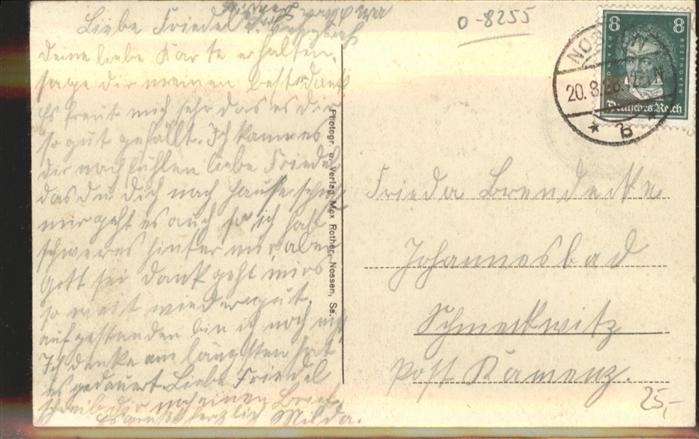 Liebe Friedel!
deine liebe Karte erhalten,
sage dir meinen besten dank
Es freut mich sehr das es dir
so gut gefällt. Ich kann es
dir nachfühlen liebe Friedel
das du dich nach Hause
mir geht es auch so ich hab
schweres hinter mir, aber
Gott sei dank geht mirs
so weit wieder gut,
aufgestanden bin ich noch nicht
Ich denke am längsten hat
es gedauert. Liebe Friedel
schreib dir noch einen Brief
Es grüßt herzlich Milda.
Photogr. u. Verlag Max Rother, Nossen, Sa.
0-8255
8 8
Deutsches Reich
20.8.28
* b *
Frieda Brendecke
Johannesbad
Schmeckwitz
Post Kamenz.
25,-